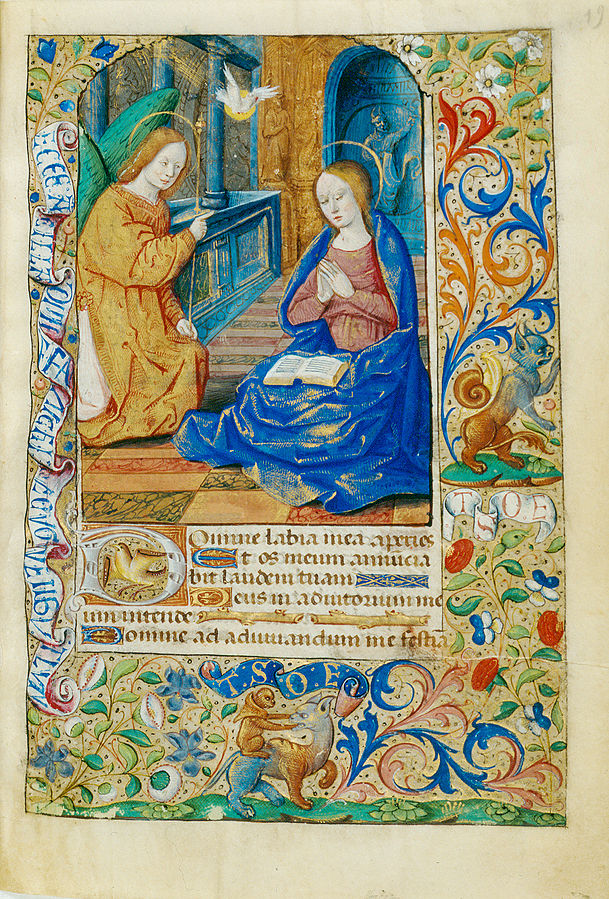 19
Domine labia mea aperies
Et os meum annūcia
bit laudem tuam
Deus in adiutorium me
um intende
Domine ad adiuuandum me festīa
T S O E
T · S · O · E